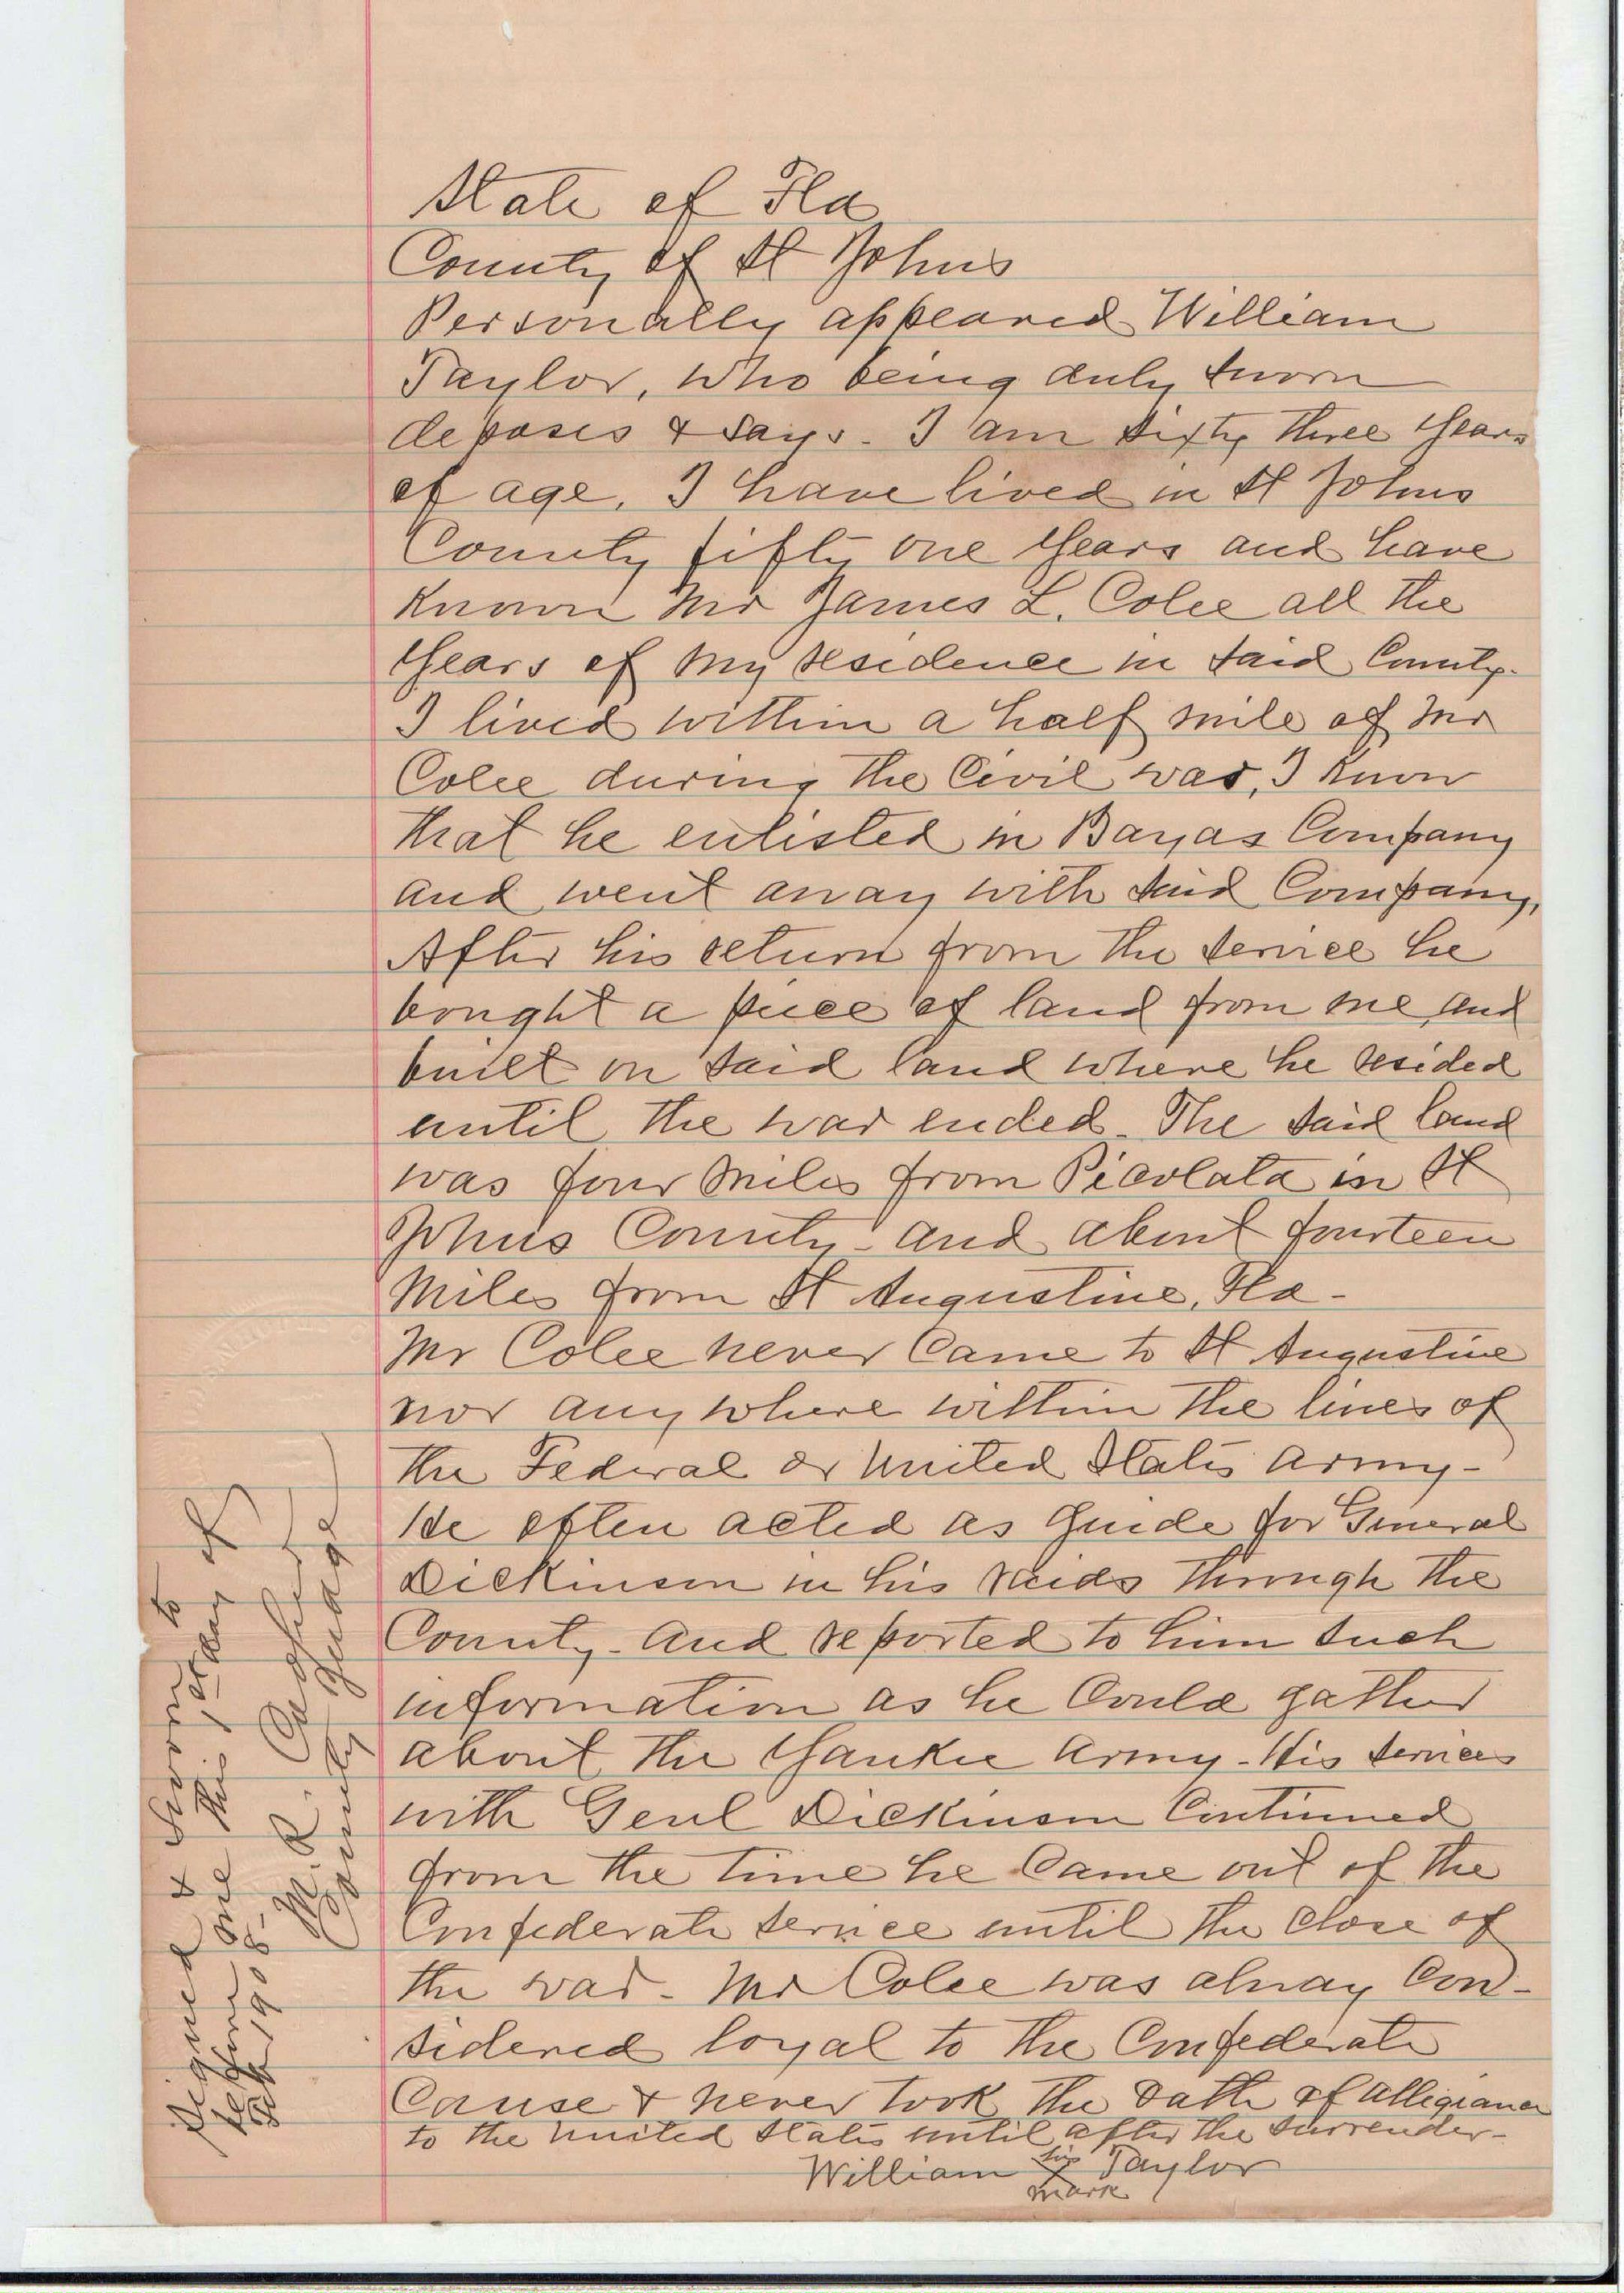 State of Fla
County of St Johns
Personally appeared William
Taylor, who being duly sworn
deposes & says. I am sixty three years
of age, I have lived in St Johns
County fifty one years and have
known Mr James L. Colee all the
years of my residence in said County.
I lived within a half mile of Mr
Colee during the Civil war, I know
that he enlisted in Bayas Company
and went away with said Company,
After his return from the service he
bought a piece of land from me, and
built on said land where he resided
until the war ended. The said land
was four miles from Picolata in St
Johns County - and about fourteen
miles from St Augustine, Fla -
Mr Colee never came to St Augustine
nor any where within the lines of
the Federal or United States Army -
He often acted as guide for General
Dickinson in his raids through the
County - and reported to him such
information as he could gather
about the Yankee Army - His services
with Genl Dickinson Continued
from the time he came out of the
Confederate service until the close of
the war - Mr Colee was alway con-
sidered loyal to the Confederate
Cause & never took the Oath of allegiance
to the United States until after the surrender -
William his X mark Taylor
Signed & Sworn to
before me this 1st day of
Feb 1908 -
M. R.
County Judge